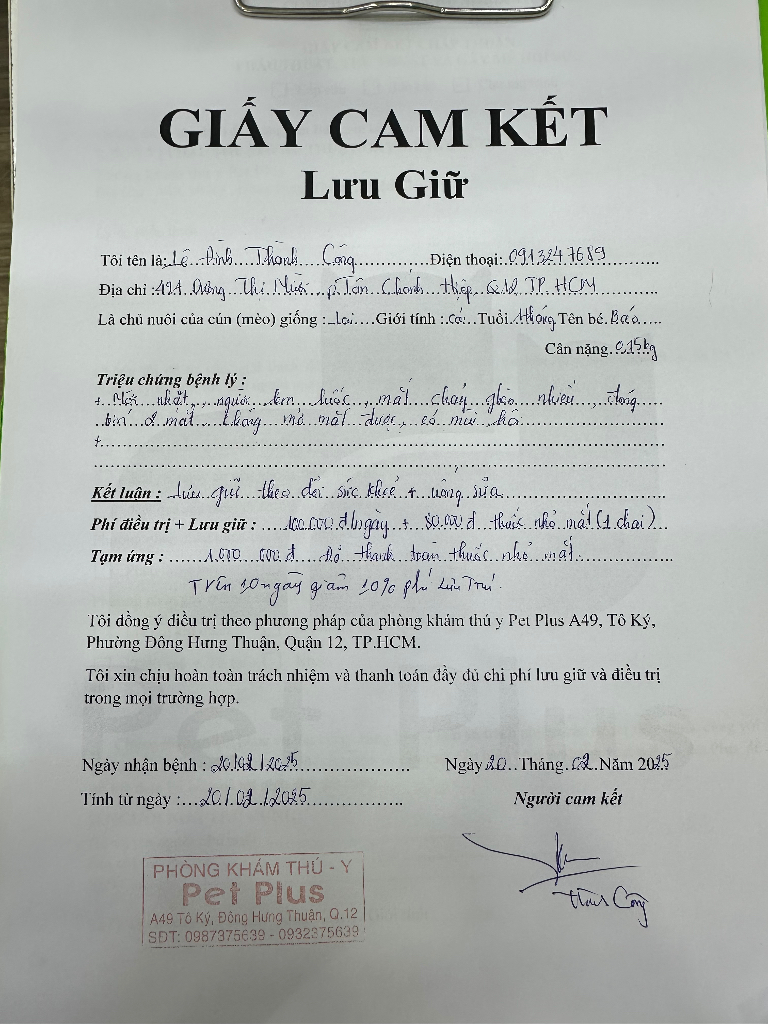 GIẤY CAM KẾT
Lưu Giữ
Tôi tên là: Lê Đình Thành Công Điện thoại: 0913247689
Địa chỉ : Dương Thị Mười, p Tân Chánh Hiệp, Q12, TP. HCM
Là chủ nuôi của cún (mèo) giống : Lai Giới tính : cái Tuổi tháng Tên bé. Báo
Cân nặng. 0,15kg
Triệu chứng bệnh lý :
+ nhặt, người lem luốc, mắt chảy ghèn nhiều, đóng
2 mắt không mở mắt được, có mùi hôi
+
Kết luận : Lưu giữ theo dõi sức khoẻ + uống sữa
Phí điều trị + Lưu giữ : 100.000 đ/ngày + 80.000 đ thuốc nhỏ mắt (1 chai)
Tạm ứng : 1.000 000 đ Đã thanh toán thuốc nhỏ mắt.
Trên 10 ngày giảm 10% phí Lưu Trú.
Tôi đồng ý điều trị theo phương pháp của phòng khám thú y Pet Plus A49, Tô Ký,
Phường Đông Hưng Thuận, Quận 12, TP.HCM.
Tôi xin chịu hoàn toàn trách nhiệm và thanh toán đầy đủ chi phí lưu giữ và điều trị
trong mọi trường hợp.
Pet Plus
Ngày nhận bệnh : 20/02/2025 Ngày 20 Tháng. 02. Năm 2025
Tính từ ngày : 20/02/2025 Người cam kết
Thành Công
PHÒNG KHÁM THÚ - Y
Pet Plus
A49 Tô Ký, Đông Hưng Thuận, Q.12
SĐT: 0987375639 - 0932375639